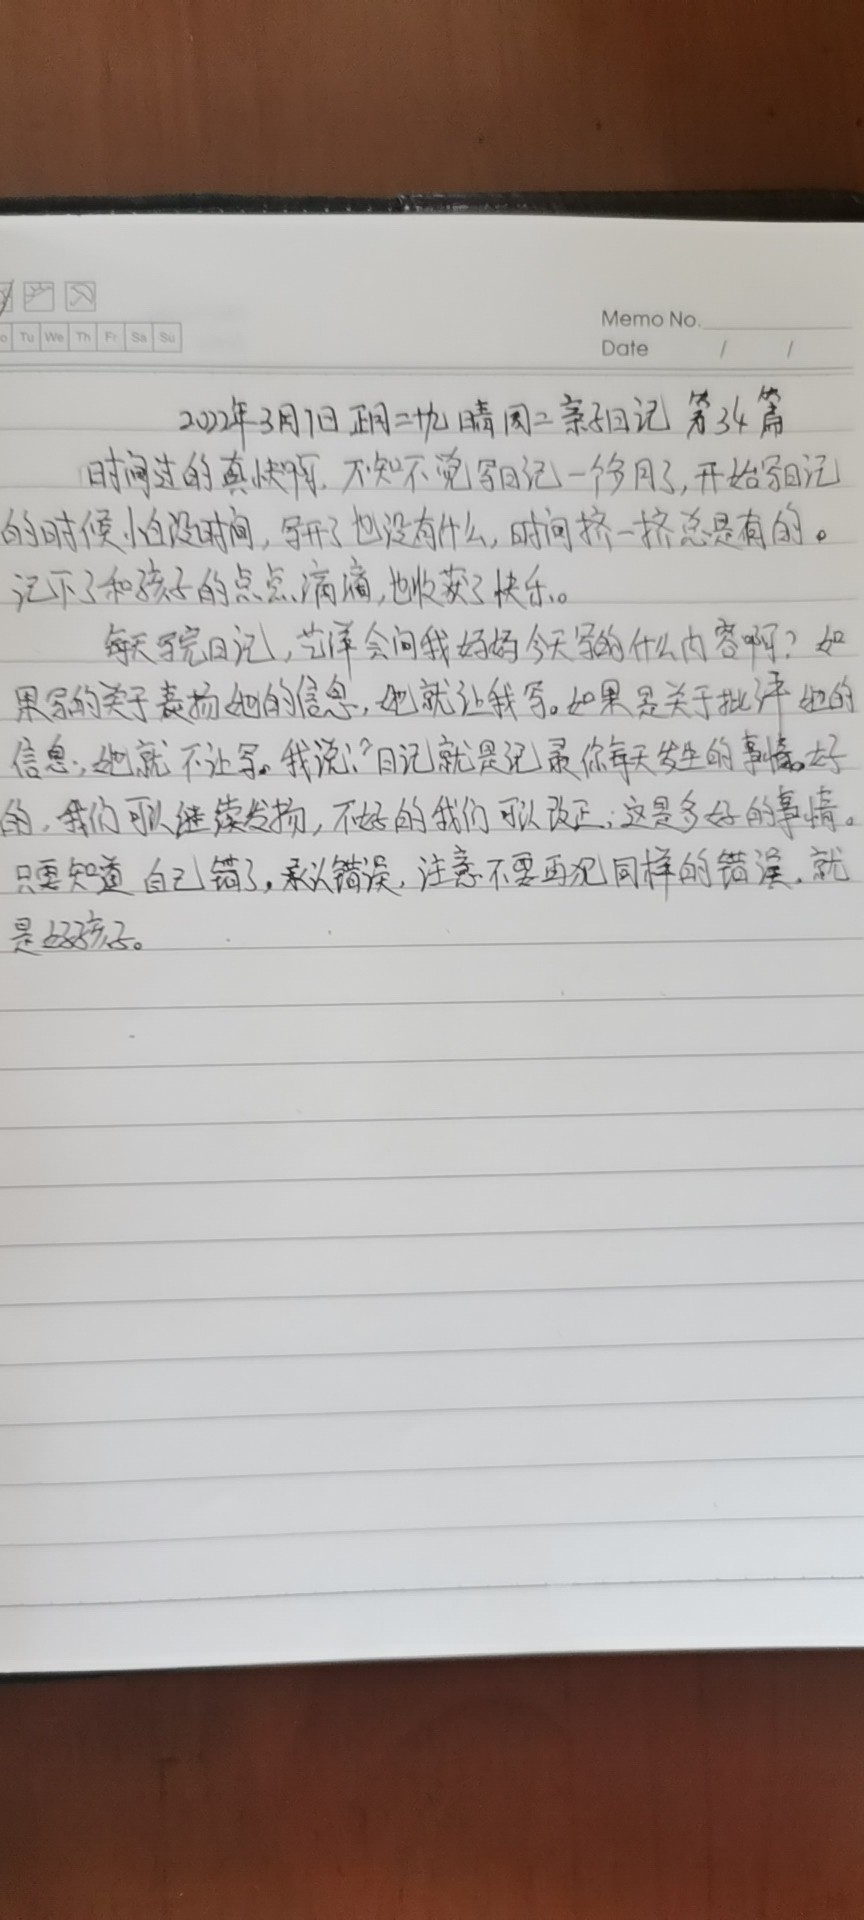 Tu We Th Fr Sa Su
Memo No.
Date / /
2022年3月1日 正月二十九 晴 周二 亲子日记 第34篇
时间过的真快啊,不知不觉写日记一个多月了,开始写日记
的时候小白没时间,写开了也没有什么,时间挤一挤总是有的。
记下了和孩子的点点滴滴,也收获了快乐。
每天写完日记,艺洋会问我妈妈今天写的什么内容啊?如
果写的关于表扬她的信息,她就让我写。如果是关于批评她的
信息,她就不让写。我说:"日记就是记录你每天发生的事情。好
的,我们可以继续发扬,不好的我们可以改正,这是多好的事情。
只要知道自己错了,承认错误,注意不要再犯同样的错误,就
是好孩子。